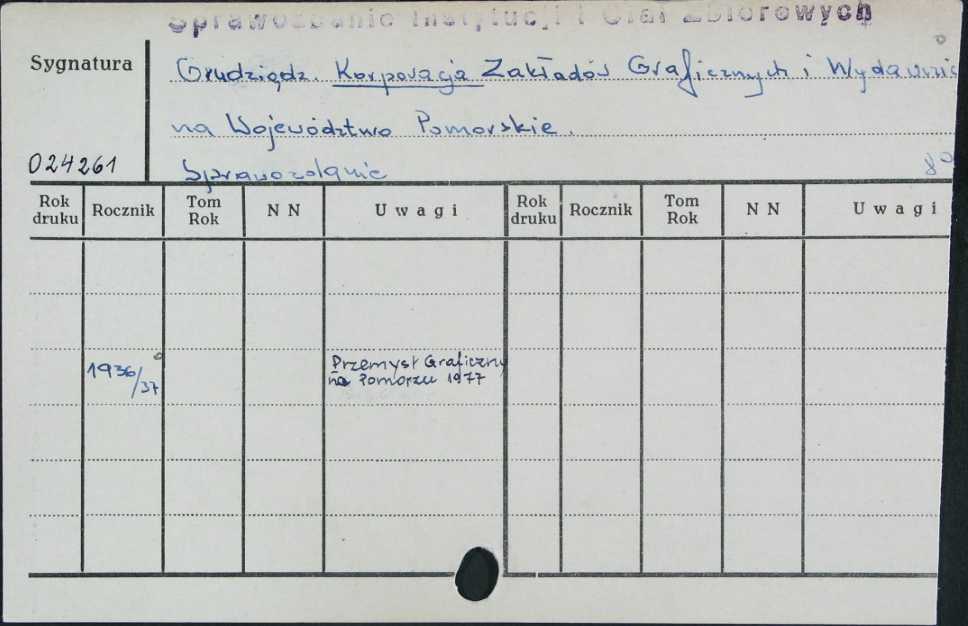 Sprawozdanie Instytucji i Ciał Zbiorowych
Sygnatura
Grudziądz. Korporacja Zakładów Graficznych i Wydawnic
na Województwo Pomorskie.
024261
Sprawozdanie
8°
Rok druku Rocznik Tom Rok N N Uwagi Rok druku Rocznik Tom Rok N N Uwagi
1936/37 Przemysł Graficzny
na Pomorzu 1977